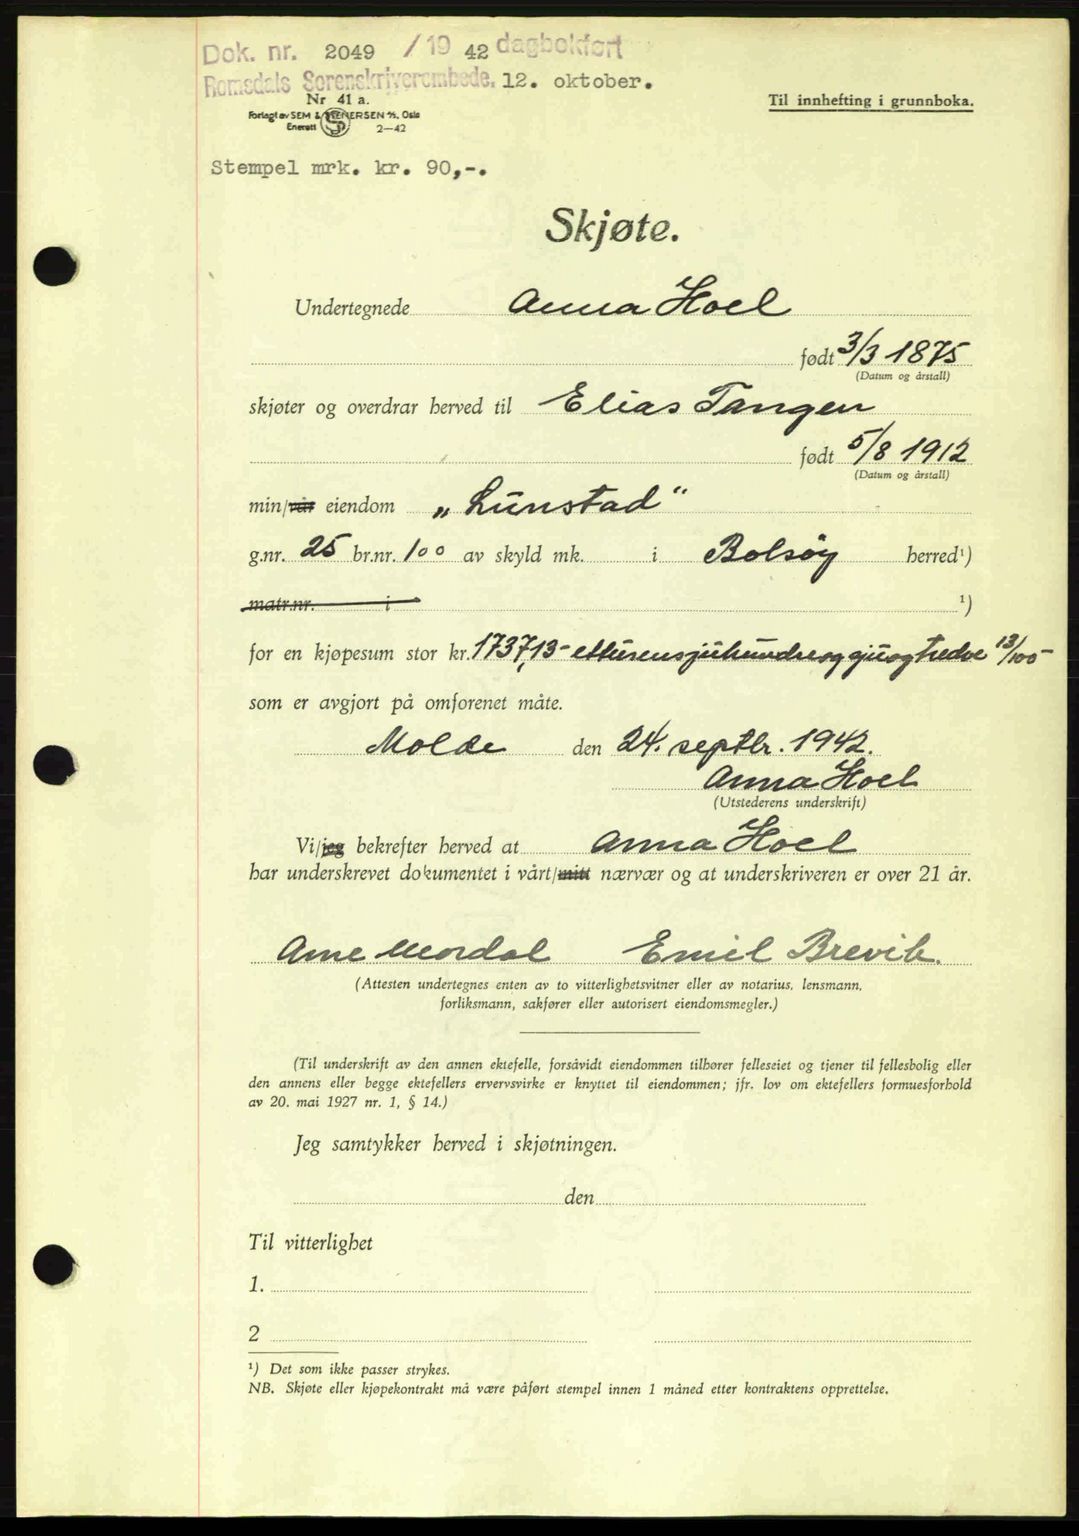 Dok. nr. 2049 /19 42 dagbokført
Romsdals Sorenskriverembede, 12. oktober.
Nr 41 a.
Til innhefting i grunnboka.
Forlagt av SEM & STENERSEN A/S. Oslo
Enerett 2-42
Stempel mrk. kr. 90,-.
Skjøte.
Undertegnede Anna Hoel
født 3/3 1875
(Datum og årstall)
skjøter og overdrar herved til Elias Tangen
født 5/8 1912
(Datum og årstall)
min/vår eiendom „Lunstad"
g.nr. 25 br.nr. 100 av skyld mk. i Bolsøy herred¹)
matr.nr. i ¹)
for en kjøpesum stor kr. 1737,13 - ettusensjuhundreogsjuogtredve 13/100 -
som er avgjort på omforenet måte.
Molde den 24. septbr. 1942.
Anna Hoel
(Utstederens underskrift)
Vi/jeg bekrefter herved at Anna Hoel
har underskrevet dokumentet i vårt/mitt nærvær og at underskriveren er over 21 år.
Arne Mordal Emil Brevik.
(Attesten undertegnes enten av to vitterlighetsvitner eller av notarius, lensmann,
forliksmann, sakfører eller autorisert eiendomsmegler.)
(Til underskrift av den annen ektefelle, forsåvidt eiendommen tilhører felleseiet og tjener til fellesbolig eller
den annens eller begge ektefellers ervervsvirke er knyttet til eiendommen; jfr. lov om ektefellers formuesforhold
av 20. mai 1927 nr. 1, § 14.)
Jeg samtykker herved i skjøtningen.
den
Til vitterlighet
1.
2
¹) Det som ikke passer strykes.
NB. Skjøte eller kjøpekontrakt må være påført stempel innen 1 måned etter kontraktens opprettelse.